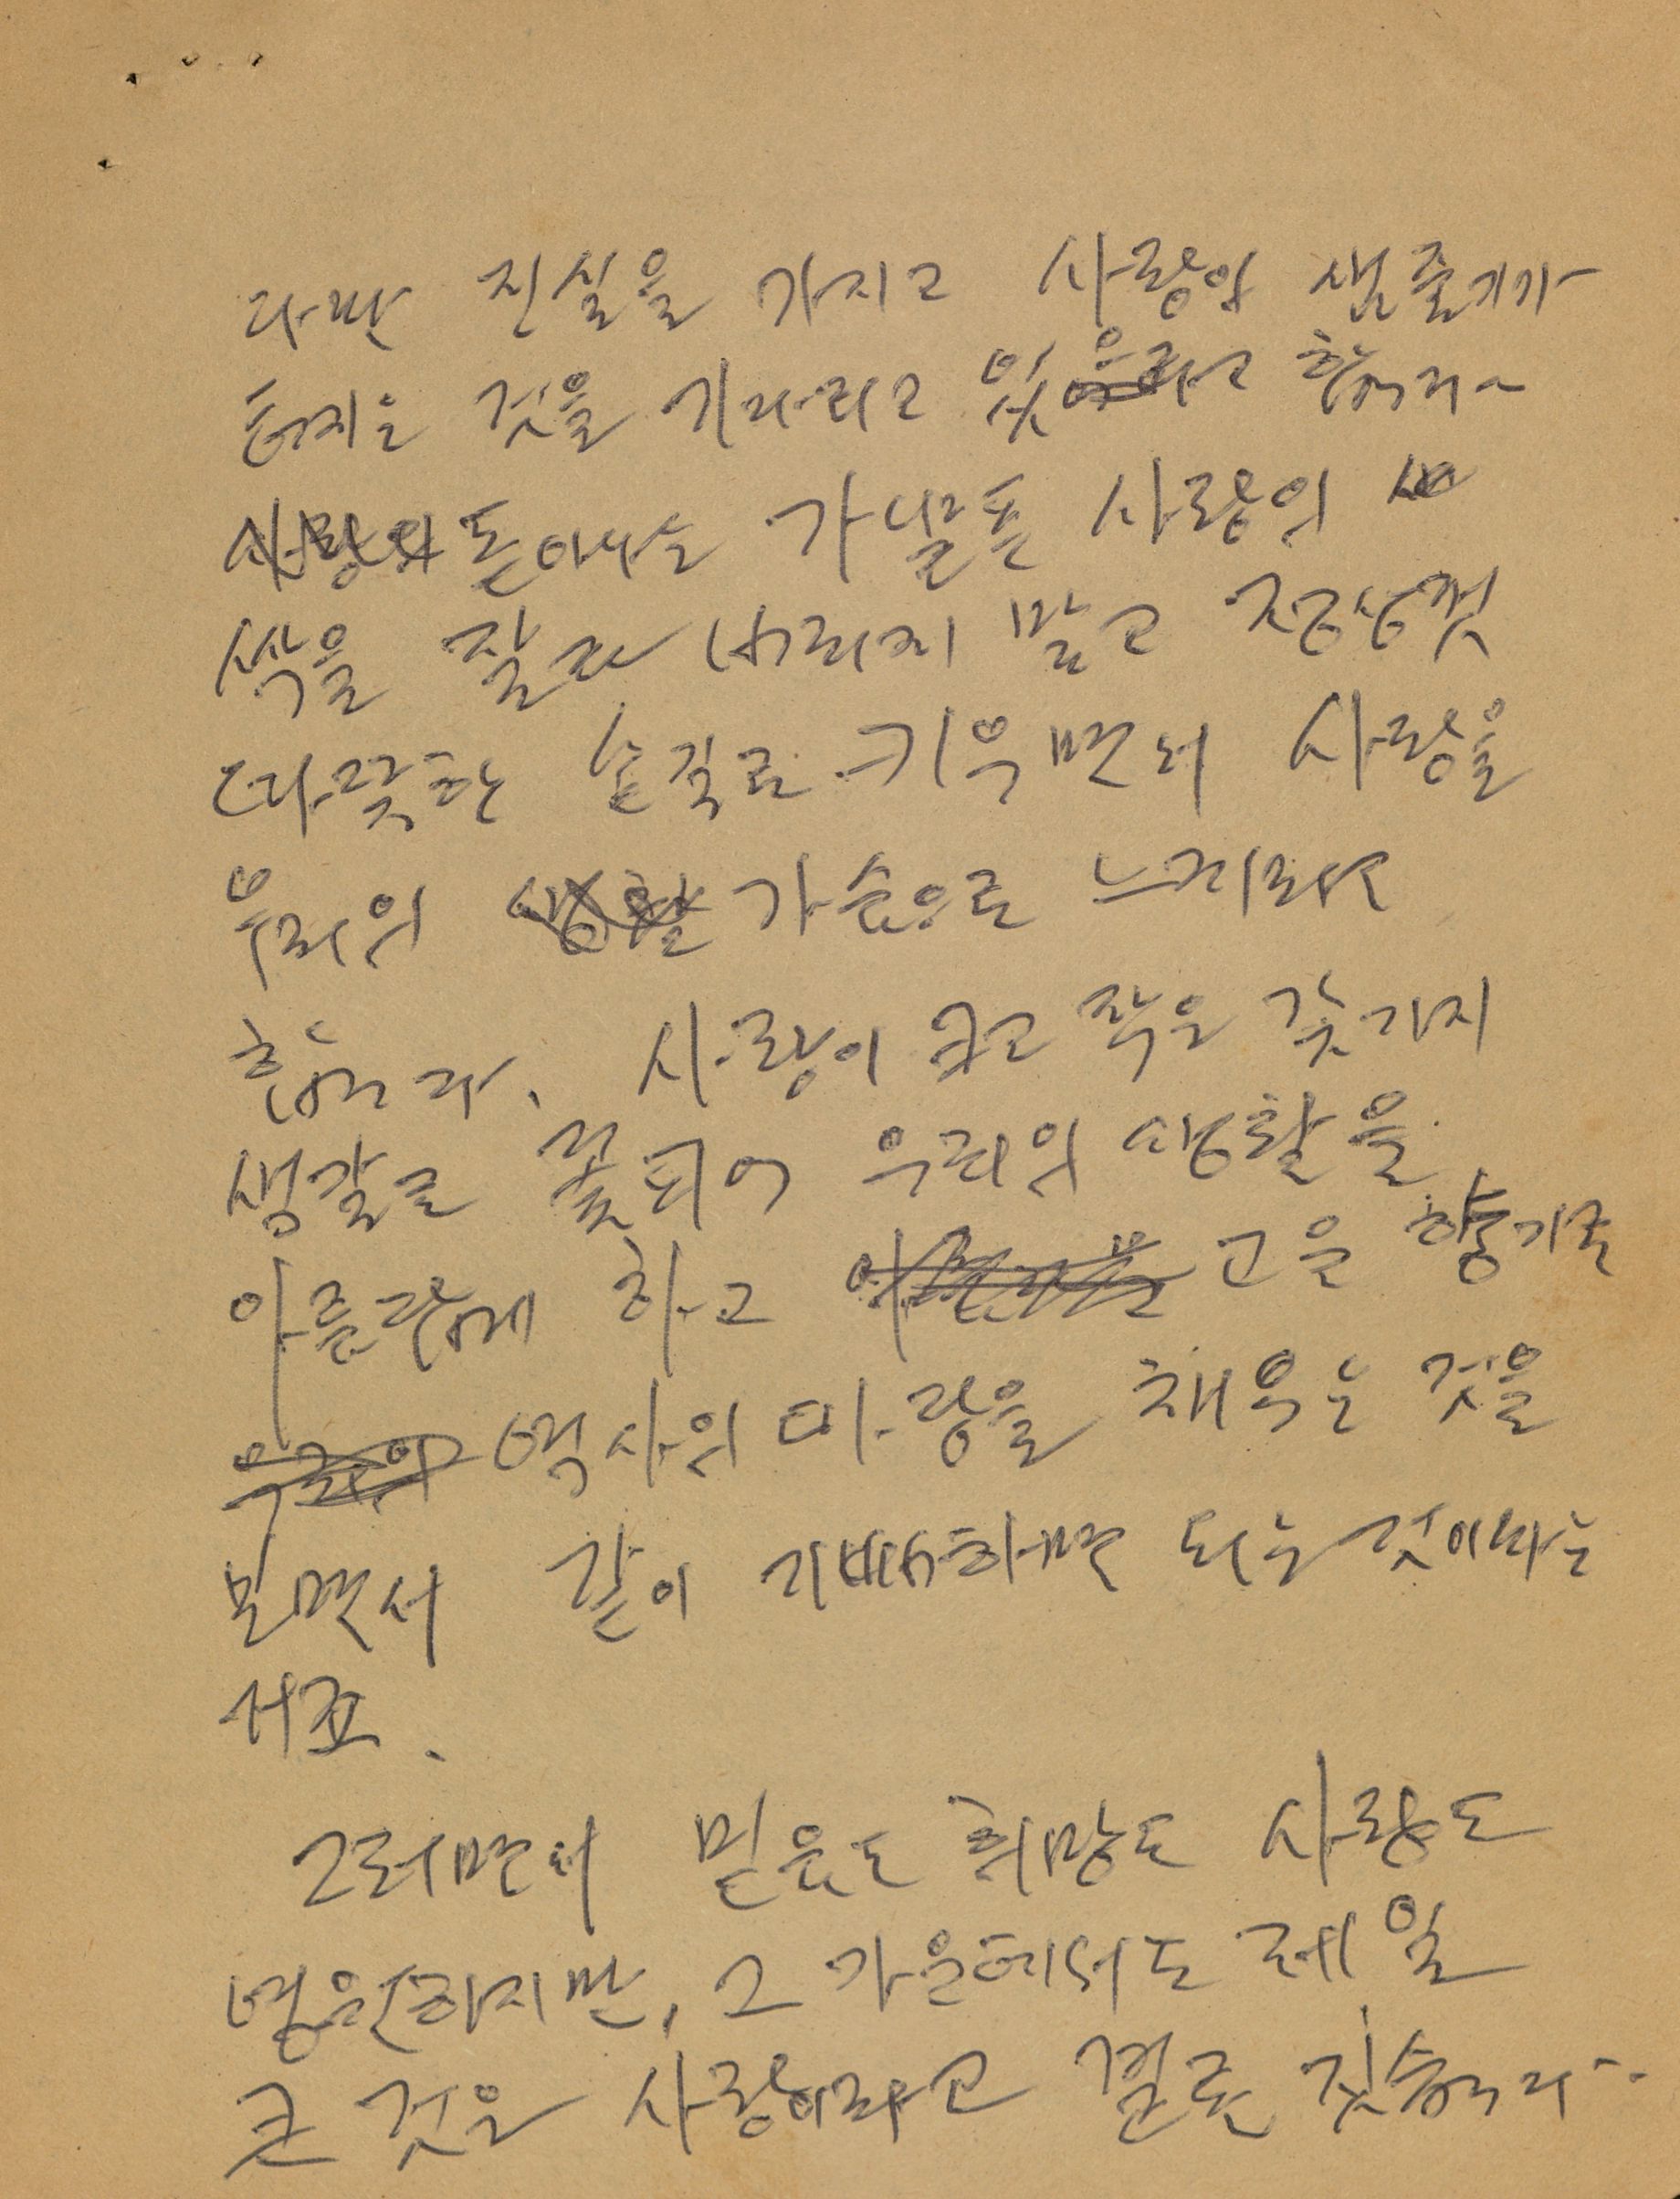 다만 진실을 가지고 사랑의 샘줄기가
터지는 것을 기다리고 있으라고 합니다
사랑의 돋아나는 가냘픈 사랑의
싹을 잘라 버리지 말고 조심성껏
따뜻한 손길로 키우면서 사랑을
우리의 생활 가슴으로 느끼라고
합니다. 사랑이 크고 작은 갖가지
색갈로 꽃피어 우리의 생활을
아름답게 하고 고운 향기로
우리의 역사의 마당을 채우는 것을
보면서 같이 기뻐하면 되는 것이라는
서죠.
그러면서 믿음도 희망도 사랑도
영원하지만, 그 가운데서도 제일
큰 것은 사랑이라고 결론 짓습니다.